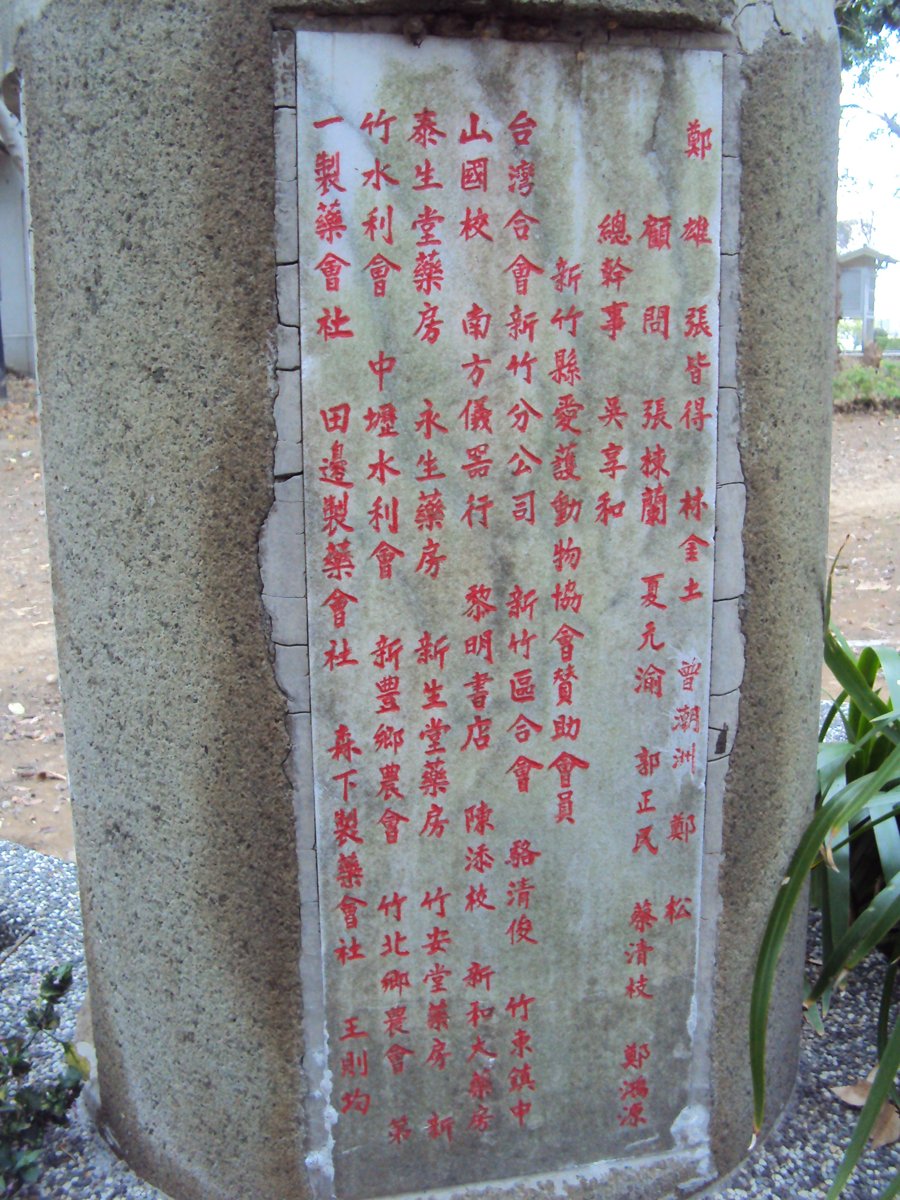 鄭 雄 張皆得 林金土 曾潮洲 鄭 松
顧 問 張棟蘭 夏元瑜 郭正民 蔡清枝 鄭鴻源
總幹事 吳享和
新竹縣愛護動物協會贊助會員
台灣合會新竹分公司 新竹區合會 駱清俊 竹東鎮中
山國校 南方儀器行 黎明書店 陳添枝 新和大藥房
泰生堂藥房 永生藥房 新生堂藥房 竹安堂藥房 新
竹水利會 中壢水利會 新豐鄉農會 竹北鄉農會 第
一製藥會社 田邊製藥會社 森下製藥會社 王則均